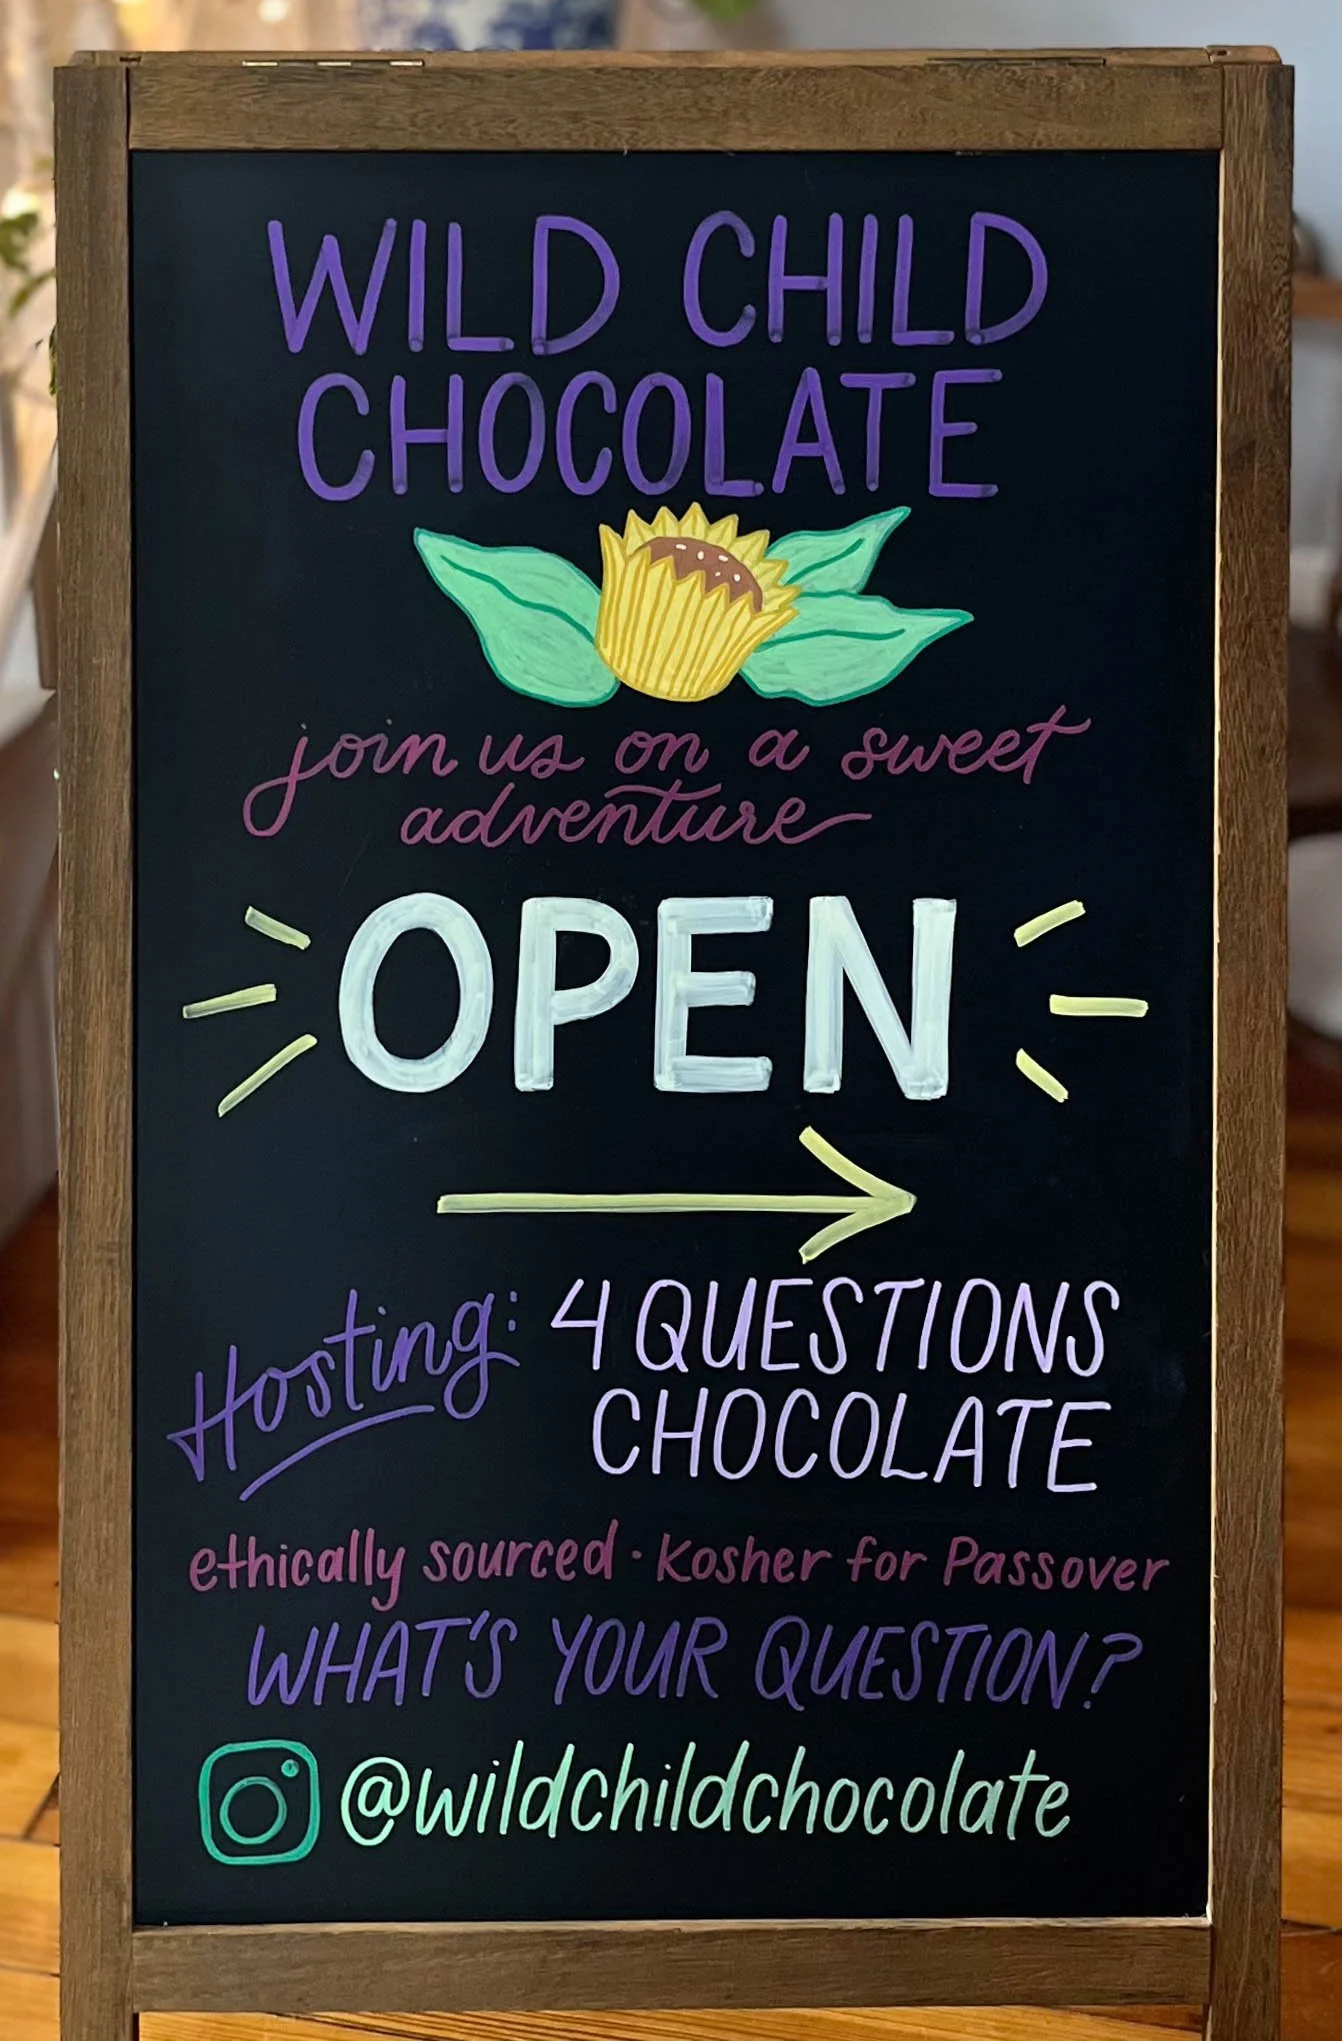 WILD CHILD
CHOCOLATE
join us on a sweet
adventure
OPEN
Hosting: 4 QUESTIONS
CHOCOLATE
ethically sourced · Kosher for Passover
WHAT'S YOUR QUESTION?
@wildchildchocolate